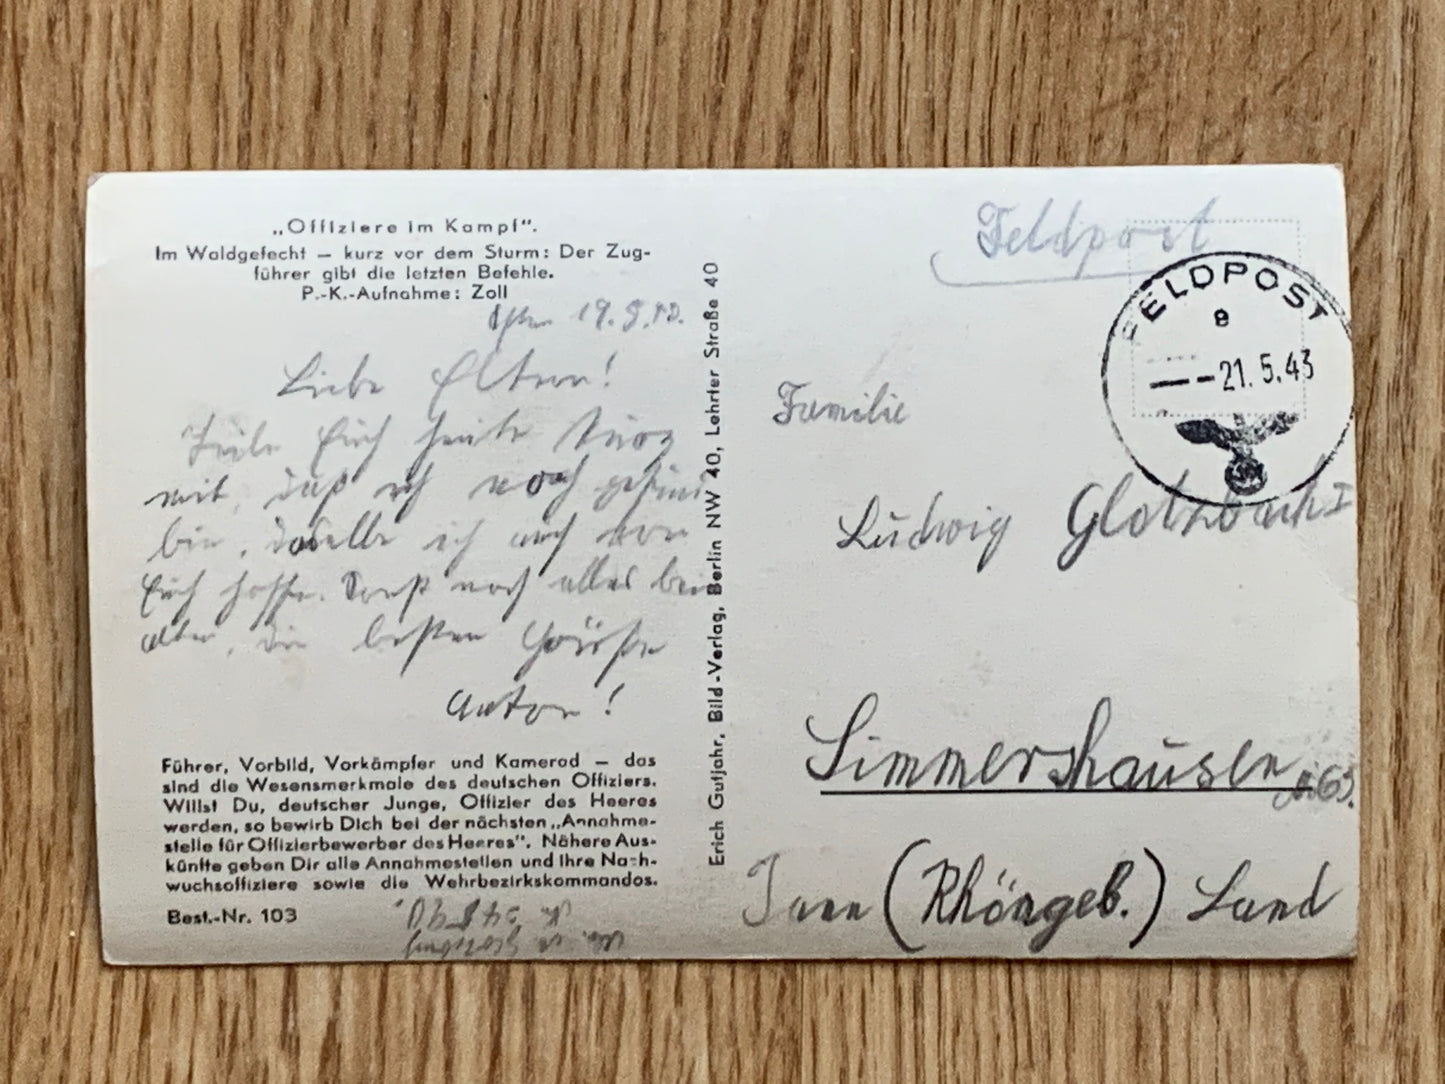 „Offiziere im Kampf“.
Im Waldgefecht — kurz vor dem Sturm: Der Zug-
führer gibt die letzten Befehle.
P.-K.-Aufnahme: Zoll
Liebe Eltern!
Teile Euch heute kurz
mit, daß ich noch gesund
bin, dasselbe ich auch von
Euch hoffe. Sonst noch alles beim
alten, die besten Grüße
Anton!
Führer, Vorbild, Vorkämpfer und Kamerad — das
sind die Wesensmerkmale des deutschen Offiziers.
Willst Du, deutscher Junge, Offizier des Heeres
werden, so bewirb Dich bei der nächsten „Annahme-
stelle für Offizierbewerber des Heeres“. Nähere Aus-
künfte geben Dir alle Annahmestellen und ihre Nach-
wuchsoffiziere sowie die Wehrbezirkskommandos.
Best.-Nr. 103
Erich Gutjahr, Bild-Verlag, Berlin NW 40, Lehrter Straße 40
Feldpost
FELDPOST
--21.5.43
Familie
Ludwig Glotzbach I
Simmershausen
Tann (Rhöngeb.) Land